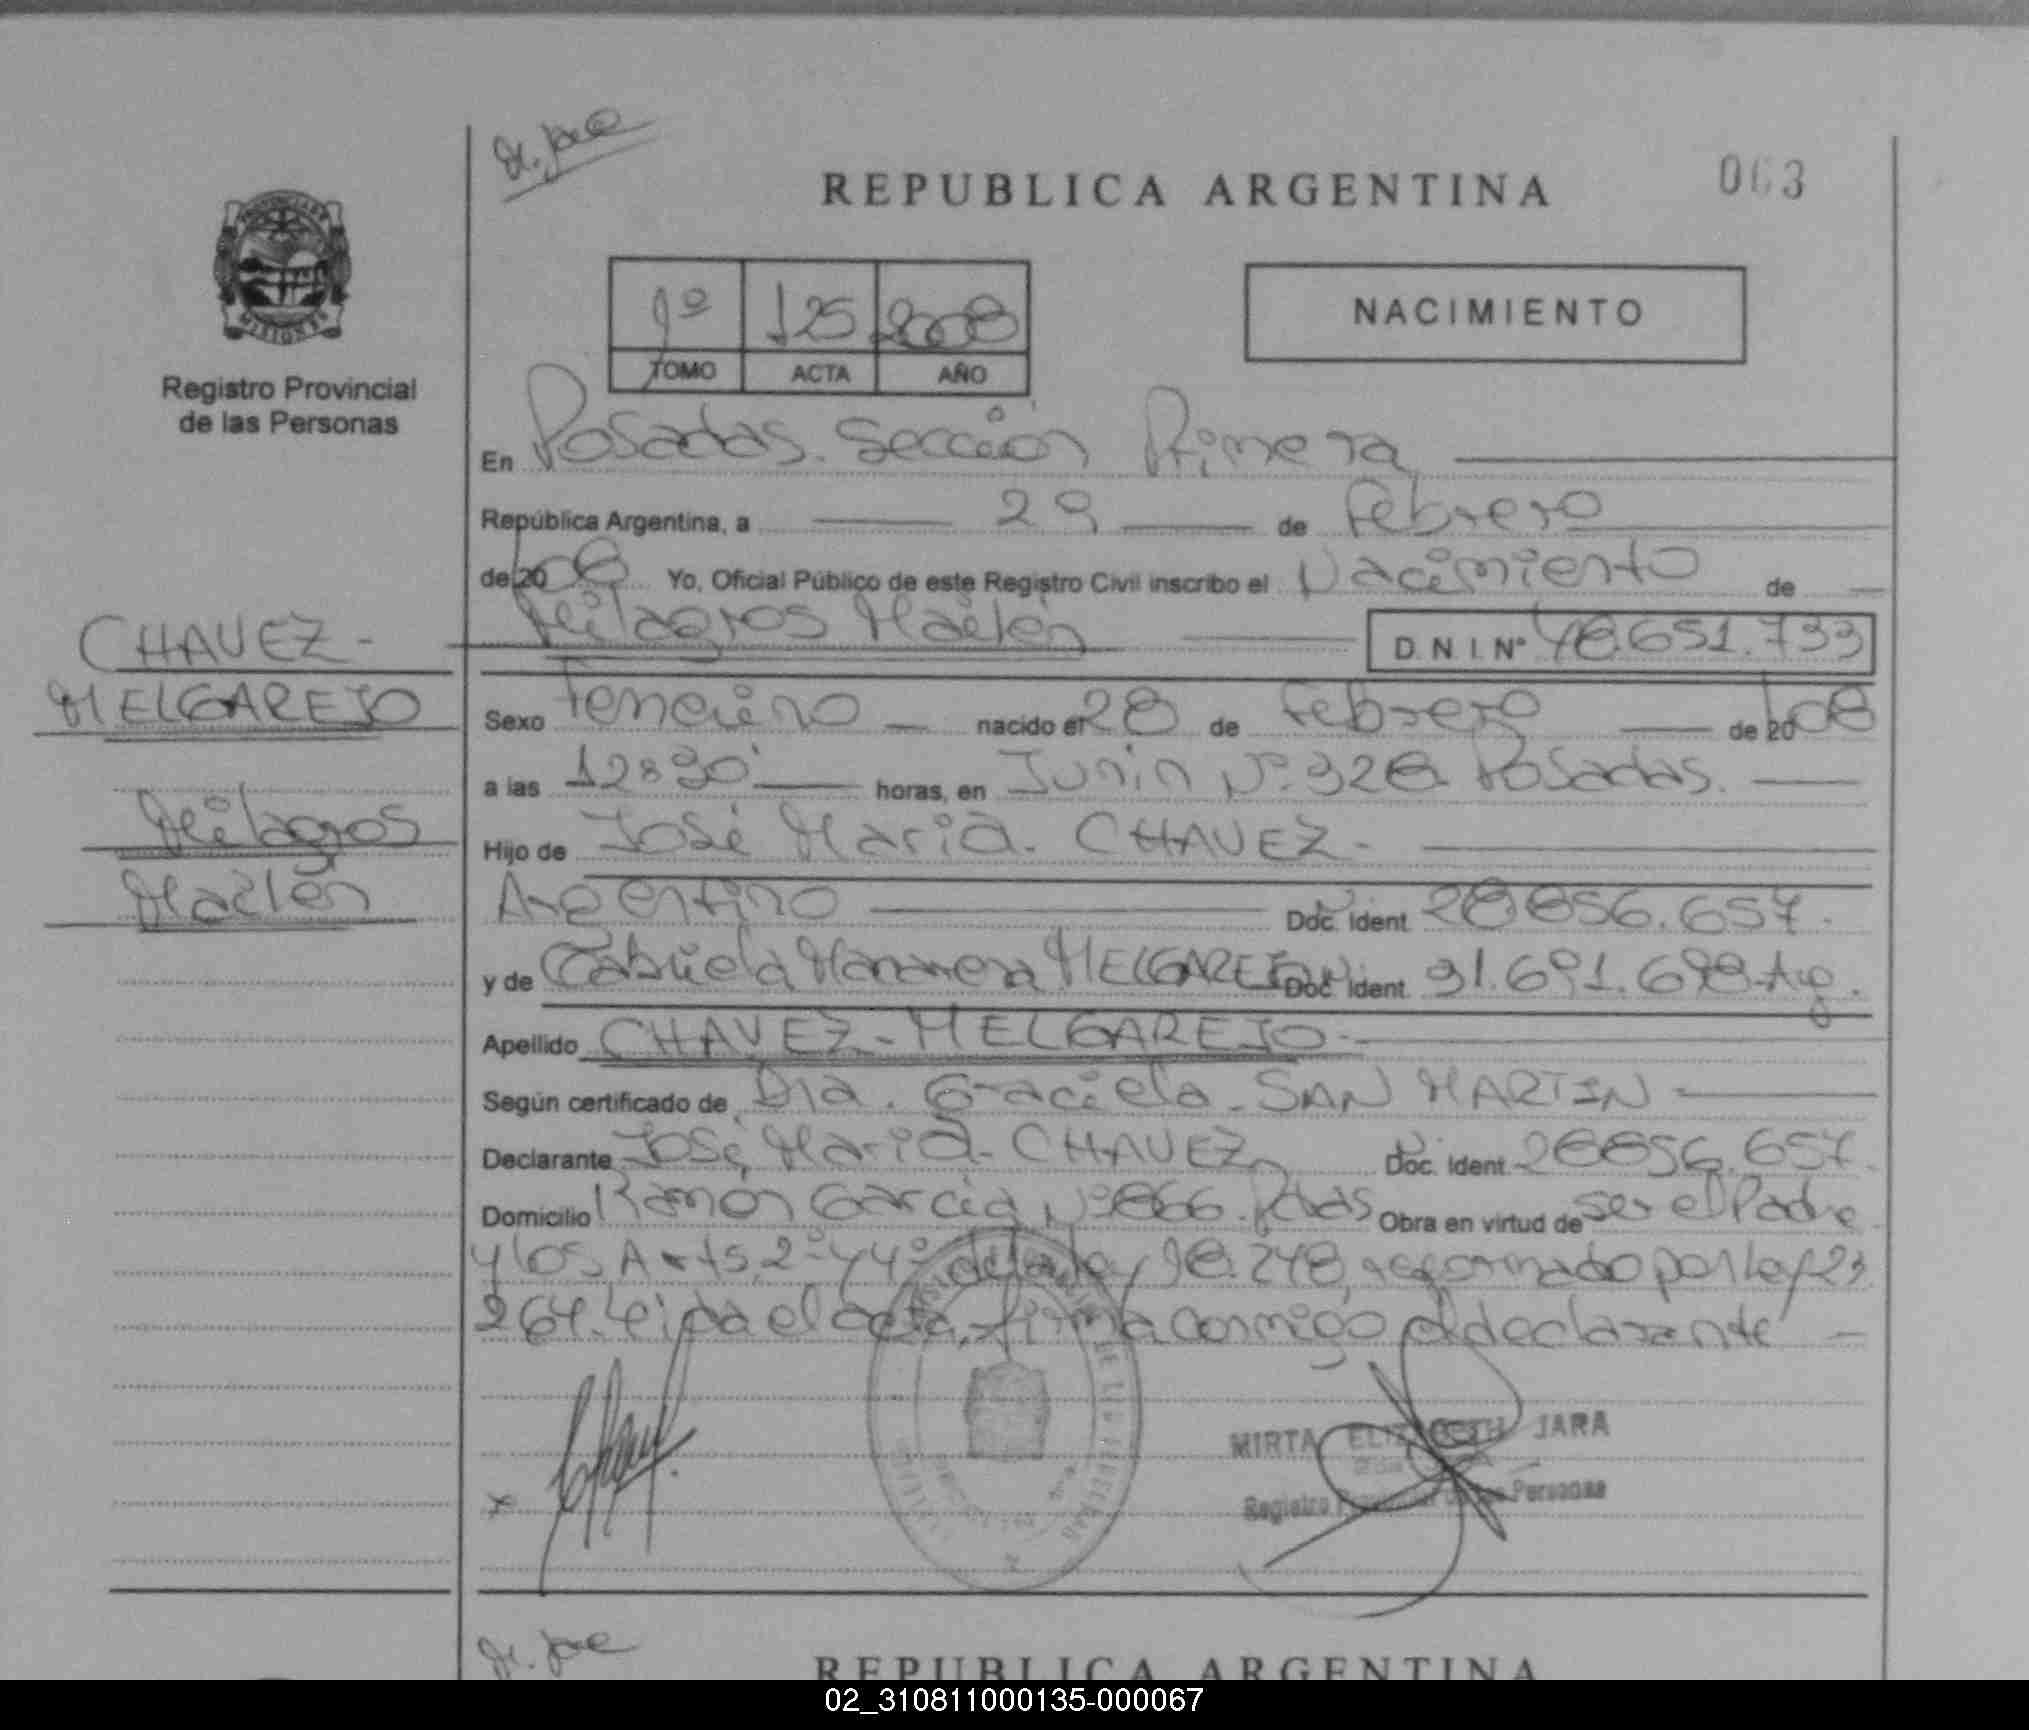 M. Jara
REPUBLICA ARGENTINA
063
PROVINCIA DE MISIONES
Registro Provincial
de las Personas
1º 125 2008
TOMO ACTA AÑO
NACIMIENTO
En Posadas. Sección Primera
República Argentina, a 29 de Febrero
de 2008 Yo, Oficial Público de este Registro Civil inscribo el Nacimiento de
Milagros Mailén D.N.I. Nº 48.651.733
CHAVEZ-
MELGAREJO
Milagros
Mailén
Sexo Femenino nacido el 28 de Febrero de 2008
a las 12:30' horas, en Junin Nº 328 Posadas.
Hijo de José Maria. CHAVEZ-
Argentino Doc. Ident. 28.856.657.
y de Gabriela Mararera MELGAREJO Doc. Ident. 31.691.698-Arg.
Apellido CHAVEZ-MELGAREJO-
Según certificado de Dra. Graciela SAN MARTIN
Declarante José Maria- CHAVEZ Doc. Ident. 28856.657.
Domicilio Ramón Garcia Nº 866. Pdas Obra en virtud de ser el Padre
y los Arts, 2º y 4º de la ley 18.248, reformado por ley 23.
264. Leida el acta, firma conmigo el declarante
x
MIRTA ELIZABETH JARA
Registro Provincial de las Personas
M. Jara
REPUBLICA ARGENTINA
02_310811000135-000067